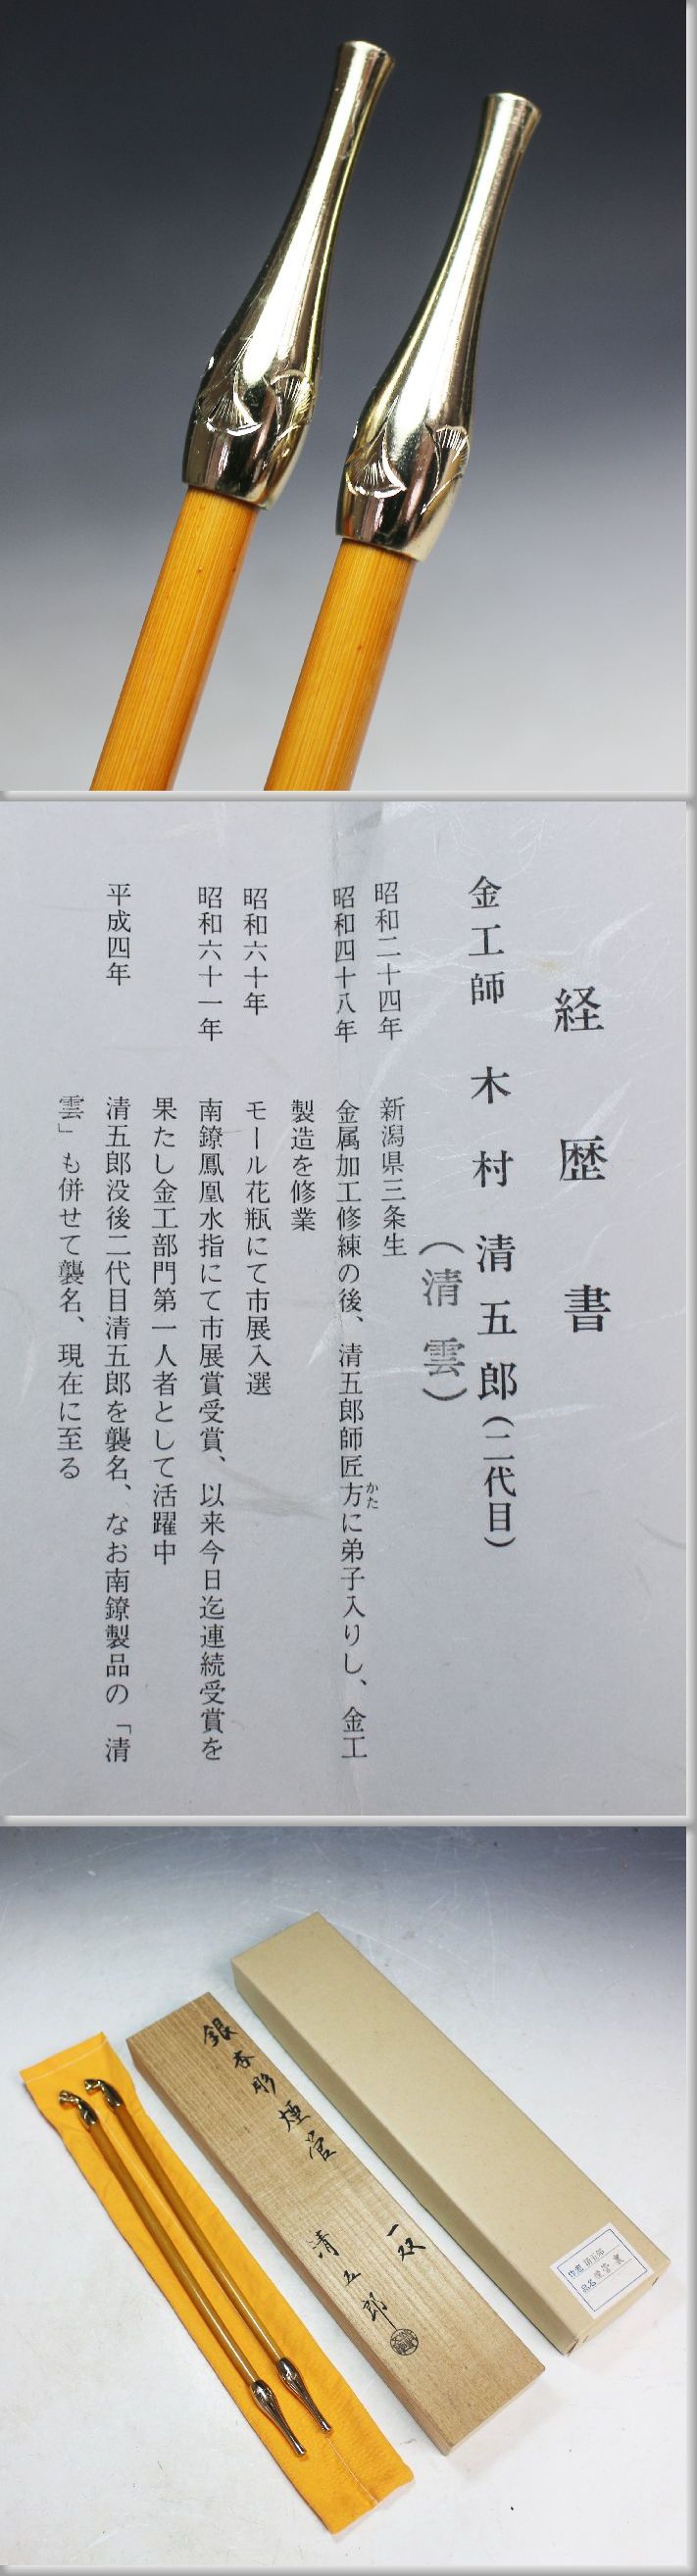 経歴書
金工師 木村 清五郎(二代目)
(清雲)
昭和二十四年 新潟県三条生
昭和四十八年 金属加工修練の後、清五郎師匠方に弟子入りし、金工
かた
製造を修業
昭和六十年 モール花瓶にて市展入選
昭和六十一年 南鐐鳳凰水指にて市展賞受賞、以来今日迄連続受賞を
果たし金工部門第一人者として活躍中
平成四年 清五郎没後二代目清五郎を襲名、なお南鐐製品の「清
雲」も併せて襲名、現在に至る
銀杏彫煙管
一双
清五郎
作者 清五郎
品名 煙管